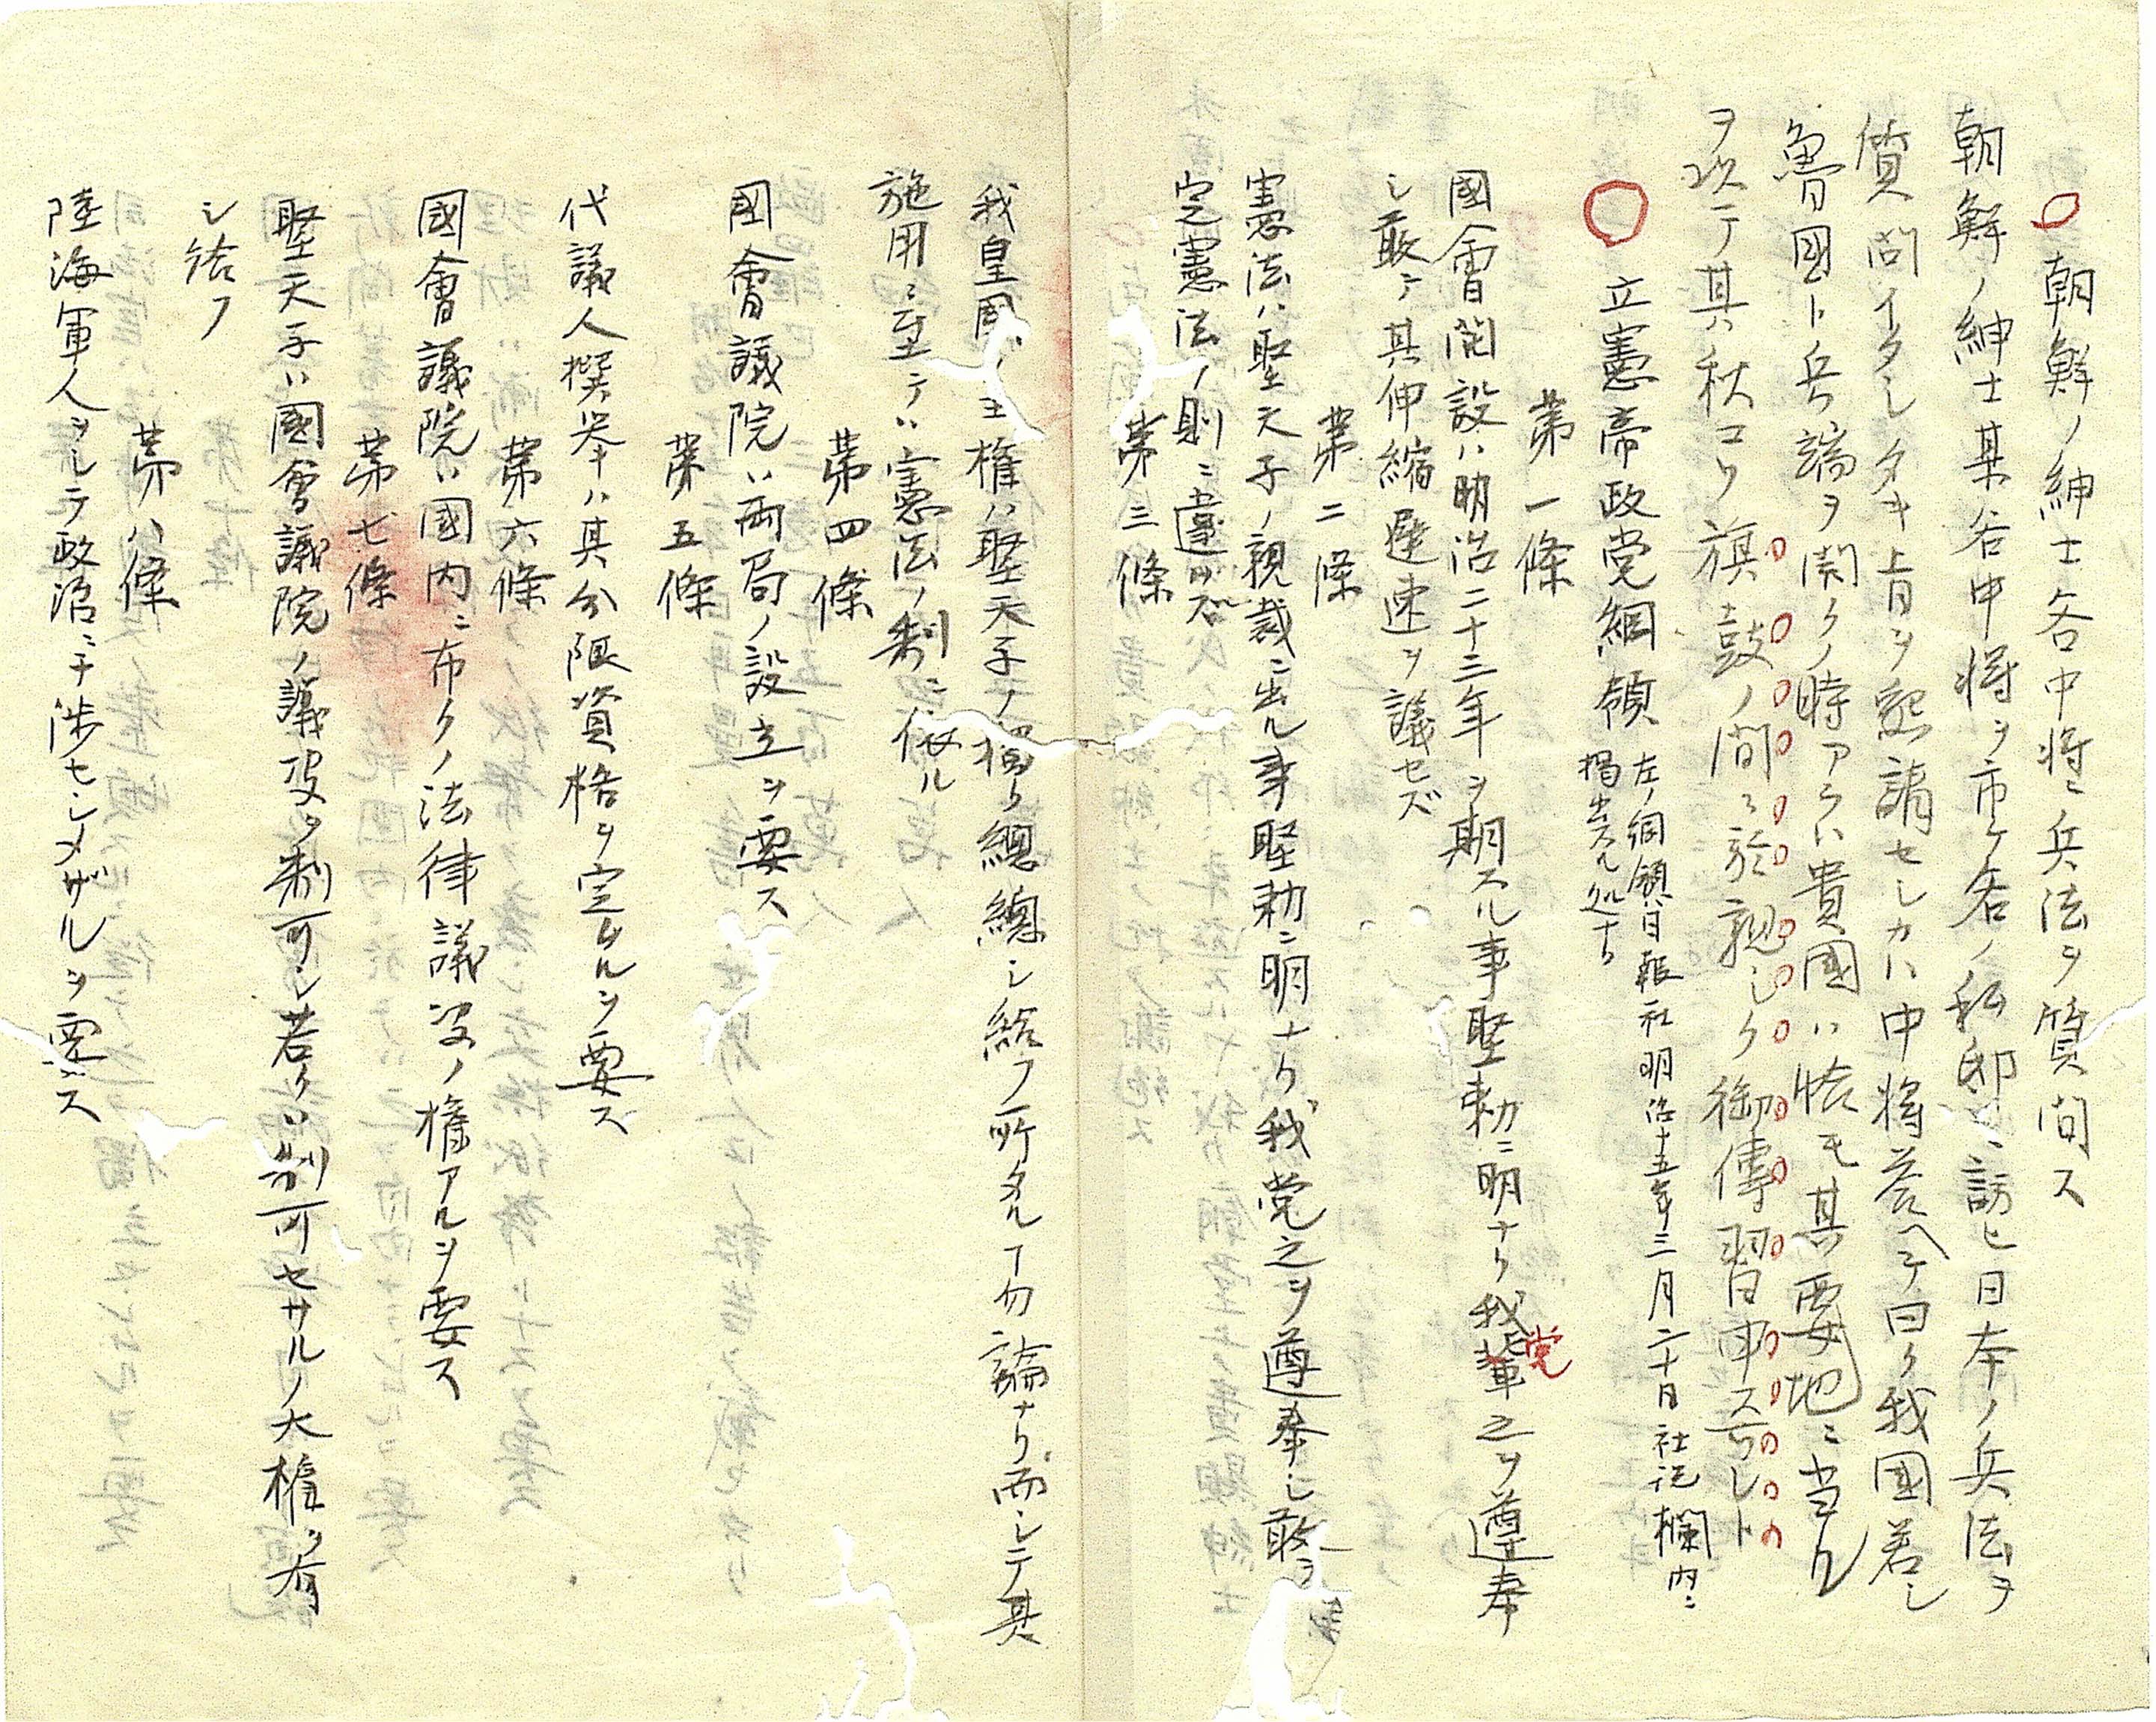 朝鮮ノ紳士谷中将ニ兵法ヲ質問ス
朝鮮ノ紳士某谷中将ヲ市ケ谷ノ私邸ニ訪ヒ日本ノ兵法ヲ
質問イタシタキ旨ヲ懇請セシカハ中将荅ヘテ曰ク我國若シ
魯国ト兵端ヲ開クノ時アラハ貴國ハ恰モ其要地ニ当ル
ヲ以テ其秋コソ旗鼓ノ間ニ於親シク御傳習申スヘシト
立憲帝政党綱領
左ノ綱領ハ日報社明治十五年三月二十日社説欄内ニ
掲出スル処ナリ
第一條
國會開設ハ明治二十三年ヲ期スル事聖勅ニ明ナリ我党之ヲ遵奉
シ敢テ其伸縮遅速ヲ議セズ
第二條
憲法ハ聖天子ノ親裁ニ出ル事聖勅ニ明ナリ我党之ヲ遵奉シ敢テ
定憲法ノ則ニ違ハズ
第三條
我皇国ノ主権ハ聖天子ノ獨リ總シ給フ所タル丅勿論ナリ而シテ其
施用ニ至テハ憲法ノ制ニ依ル
第四條
國會議院ハ両局ノ設立ヲ要ス
第五條
代議人撰挙ハ其分限資格ヲ定ムルヲ要ス
第六條
國會議院ハ國内ニ布クノ法律議决ノ権アルヲ要ス
第七條
聖天子ハ國會議院ノ議决ヲ制可シ若クハ制可セサルノ大権ヲ有
シ給フ
第八條
陸海軍人ヲシテ政治ニ干渉セシメザルヲ要ス